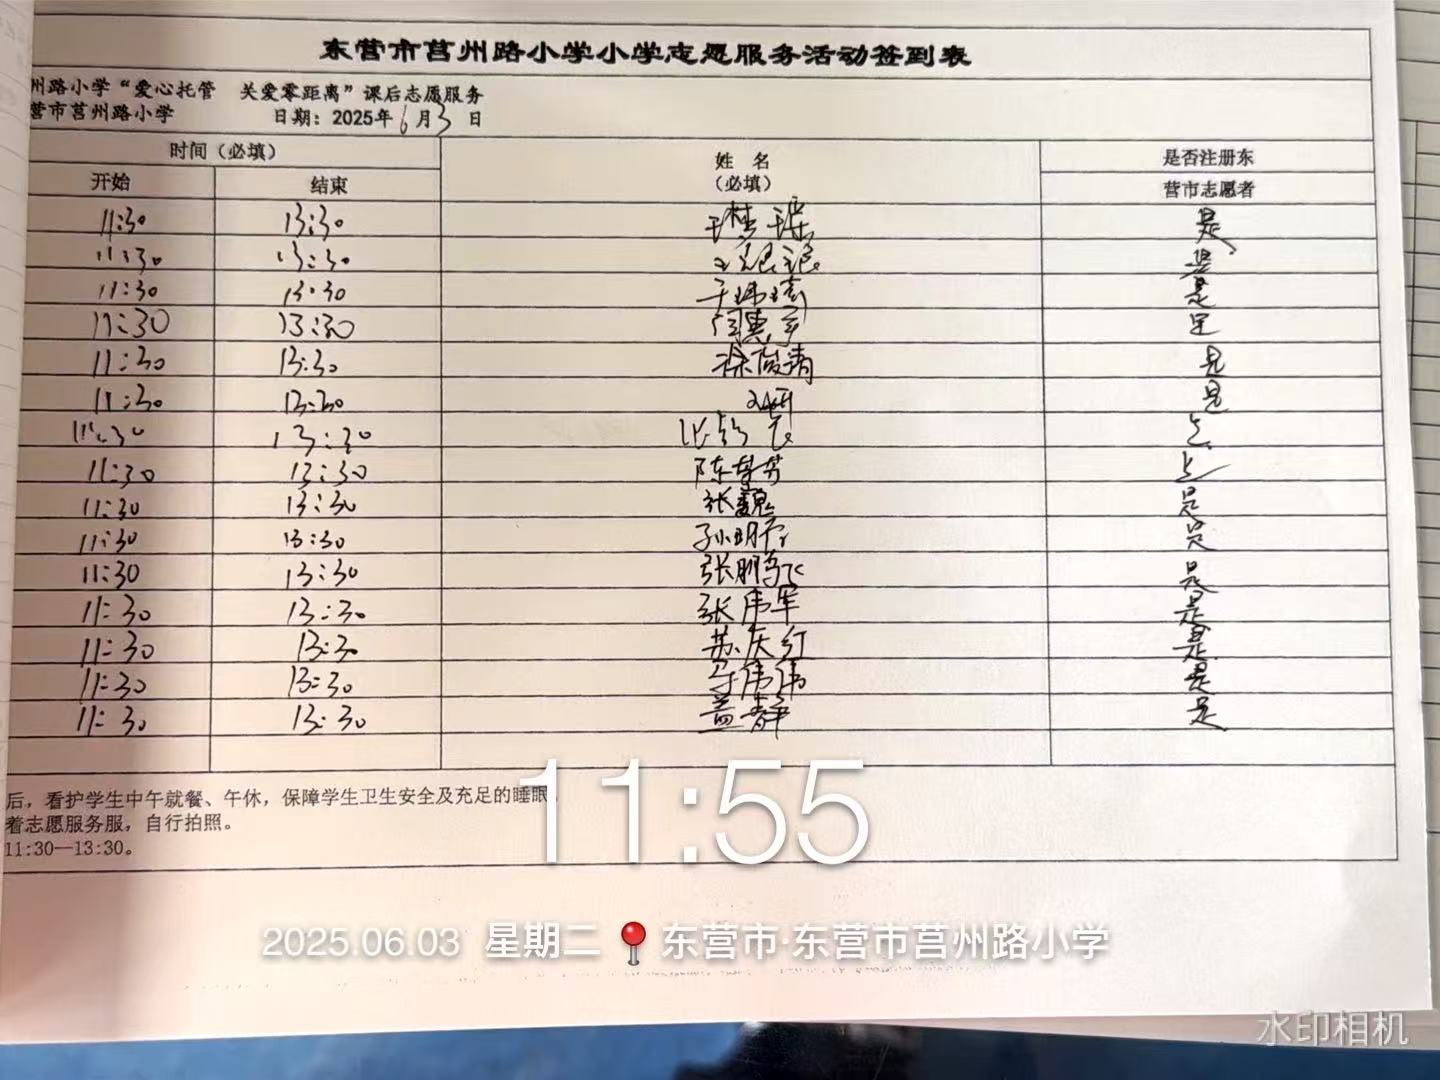 东营市莒州路小学小学志愿服务活动签到表
州路小学“爱心托管 关爱零距离”课后志愿服务
营市莒州路小学 日期：2025年6月3日
时间（必填） 姓 名 是否注册东
开始 结束 （必填） 营市志愿者
11:30 13:30 是
11:30 13:30 是
11:30 13:30 是
11:30 13:30 是
11:30 13:30 徐俊清 是
11:30 13:30 是
11:30 13:30
11:30 13:30 陈春芳
11:30 13:30 张巍 是
11:30 13:30 孙明 是
11:30 13:30 张鹏飞 是
11:30 13:30 张伟军 是
11:30 13:30 苏庆红 是
11:30 13:30 马伟伟 是
11:30 13:30 盖静 是
后，看护学生中午就餐、午休，保障学生卫生安全及充足的睡眠
着志愿服务服，自行拍照。
11:30—13:30。
11:55
2025.06.03 星期二 东营市·东营市莒州路小学
水印相机